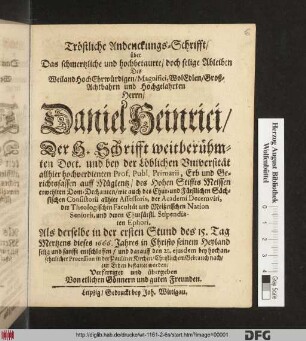 Tröstliche Andenckungs-Schrifft/
über
Das schmertzliche und hochbetaurte/ doch selige Ableiben
Des
Weiland HochEhrwürdigen/ Magnifici, WolEdlen/ Groß-
Achtbahrn und Hochgelahrten
Herrn/
Daniel Heinrici/
Der H. Schrifft weitberühm-
ten Doct. und bey der Löblichen Universität
allhier hochverdienten Prof. Publ. Primarii, Erb und Ge-
richtssassen auff Müglentz/ des Hohen Stiffts Meissen
erwehlten Dom-Dechantens/ wie auch des Chur- und Fürstlichen Säch-
sischen Consistorii allhier Assessoris, der Academi Decemviri,
der Theologischen Facultät und Meißnischen Nation
Senioris, und derer Churfürstl. Stipendia-
ten Ephori,
Als derselbe in der ersten Stund des 15. Tag
Mertzens dieses 1666. Jahres in Christo seinem Heyland
selig und sanfft entschlaffen/ und darauf den 21. ejusdem bey hochan-
sehnlicher Procession in der Pauliner Kirchen Christlichem Gebrauch nach
zur Erden bestattet worden/
Verfertiget und übergeben
Von etlichen Gönnern und guten Freunden.
Leipzig/ Gedruckt bey Joh. Wittigau.
Herzog August
Bibliothek
Wolfenbüttel
http://diglib.hab.de/drucke/xt-1161-2-6s/start.htm?image=00001
DFG